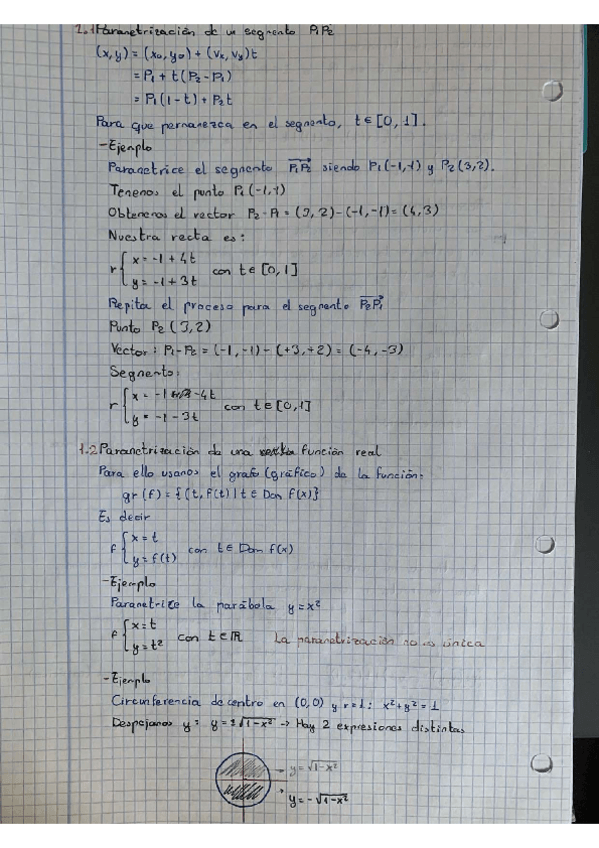 1.1 Parametrización de un segmento P₁P₂
(x,y) = (x₀,y₀) + (vₓ,vᵧ)t
= P₁ + t(P₂-P₁)
= P₁(1-t) + P₂t
Para que permanezca en el segmento, t∈[0,1].
-Ejemplo
Parametrice el segmento P₁P₂ siendo P₁(-1,-1) y P₂(3,2).
Tenemos el punto P₁(-1,-1)
Obtenemos el vector P₂-P₁ = (3,2)-(-1,-1) = (4,3)
Nuestra recta es:
r { x = -1 + 4t
y = -1 + 3t con t∈[0,1]
Repita el proceso para el segmento P₂P₁
Punto P₂(3,2)
Vector: P₁-P₂ = (-1,-1)-(+3,+2) = (-4,-3)
Segmento:
r { x = -1 -4t
y = -1-3t con t∈[0,1]
1.2 Parametrización de una función real
Para ello usamos el grafo (gráfico) de la función:
gr(f) = {(t, f(t) | t∈Dom f(x)}
Es decir
f { x = t
y = f(t) con t∈Dom f(x)
-Ejemplo
Parametrize la parábola y=x²
f { x = t
y = t² con t∈ℝ La parametrización no es única
-Ejemplo
Circunferencia de centro en (0,0) y r=1: x²+y²=1
Despejamos y: y=±√1-x² → Hay 2 expresiones distintas
→ y=√1-x²
y=-√1-x²